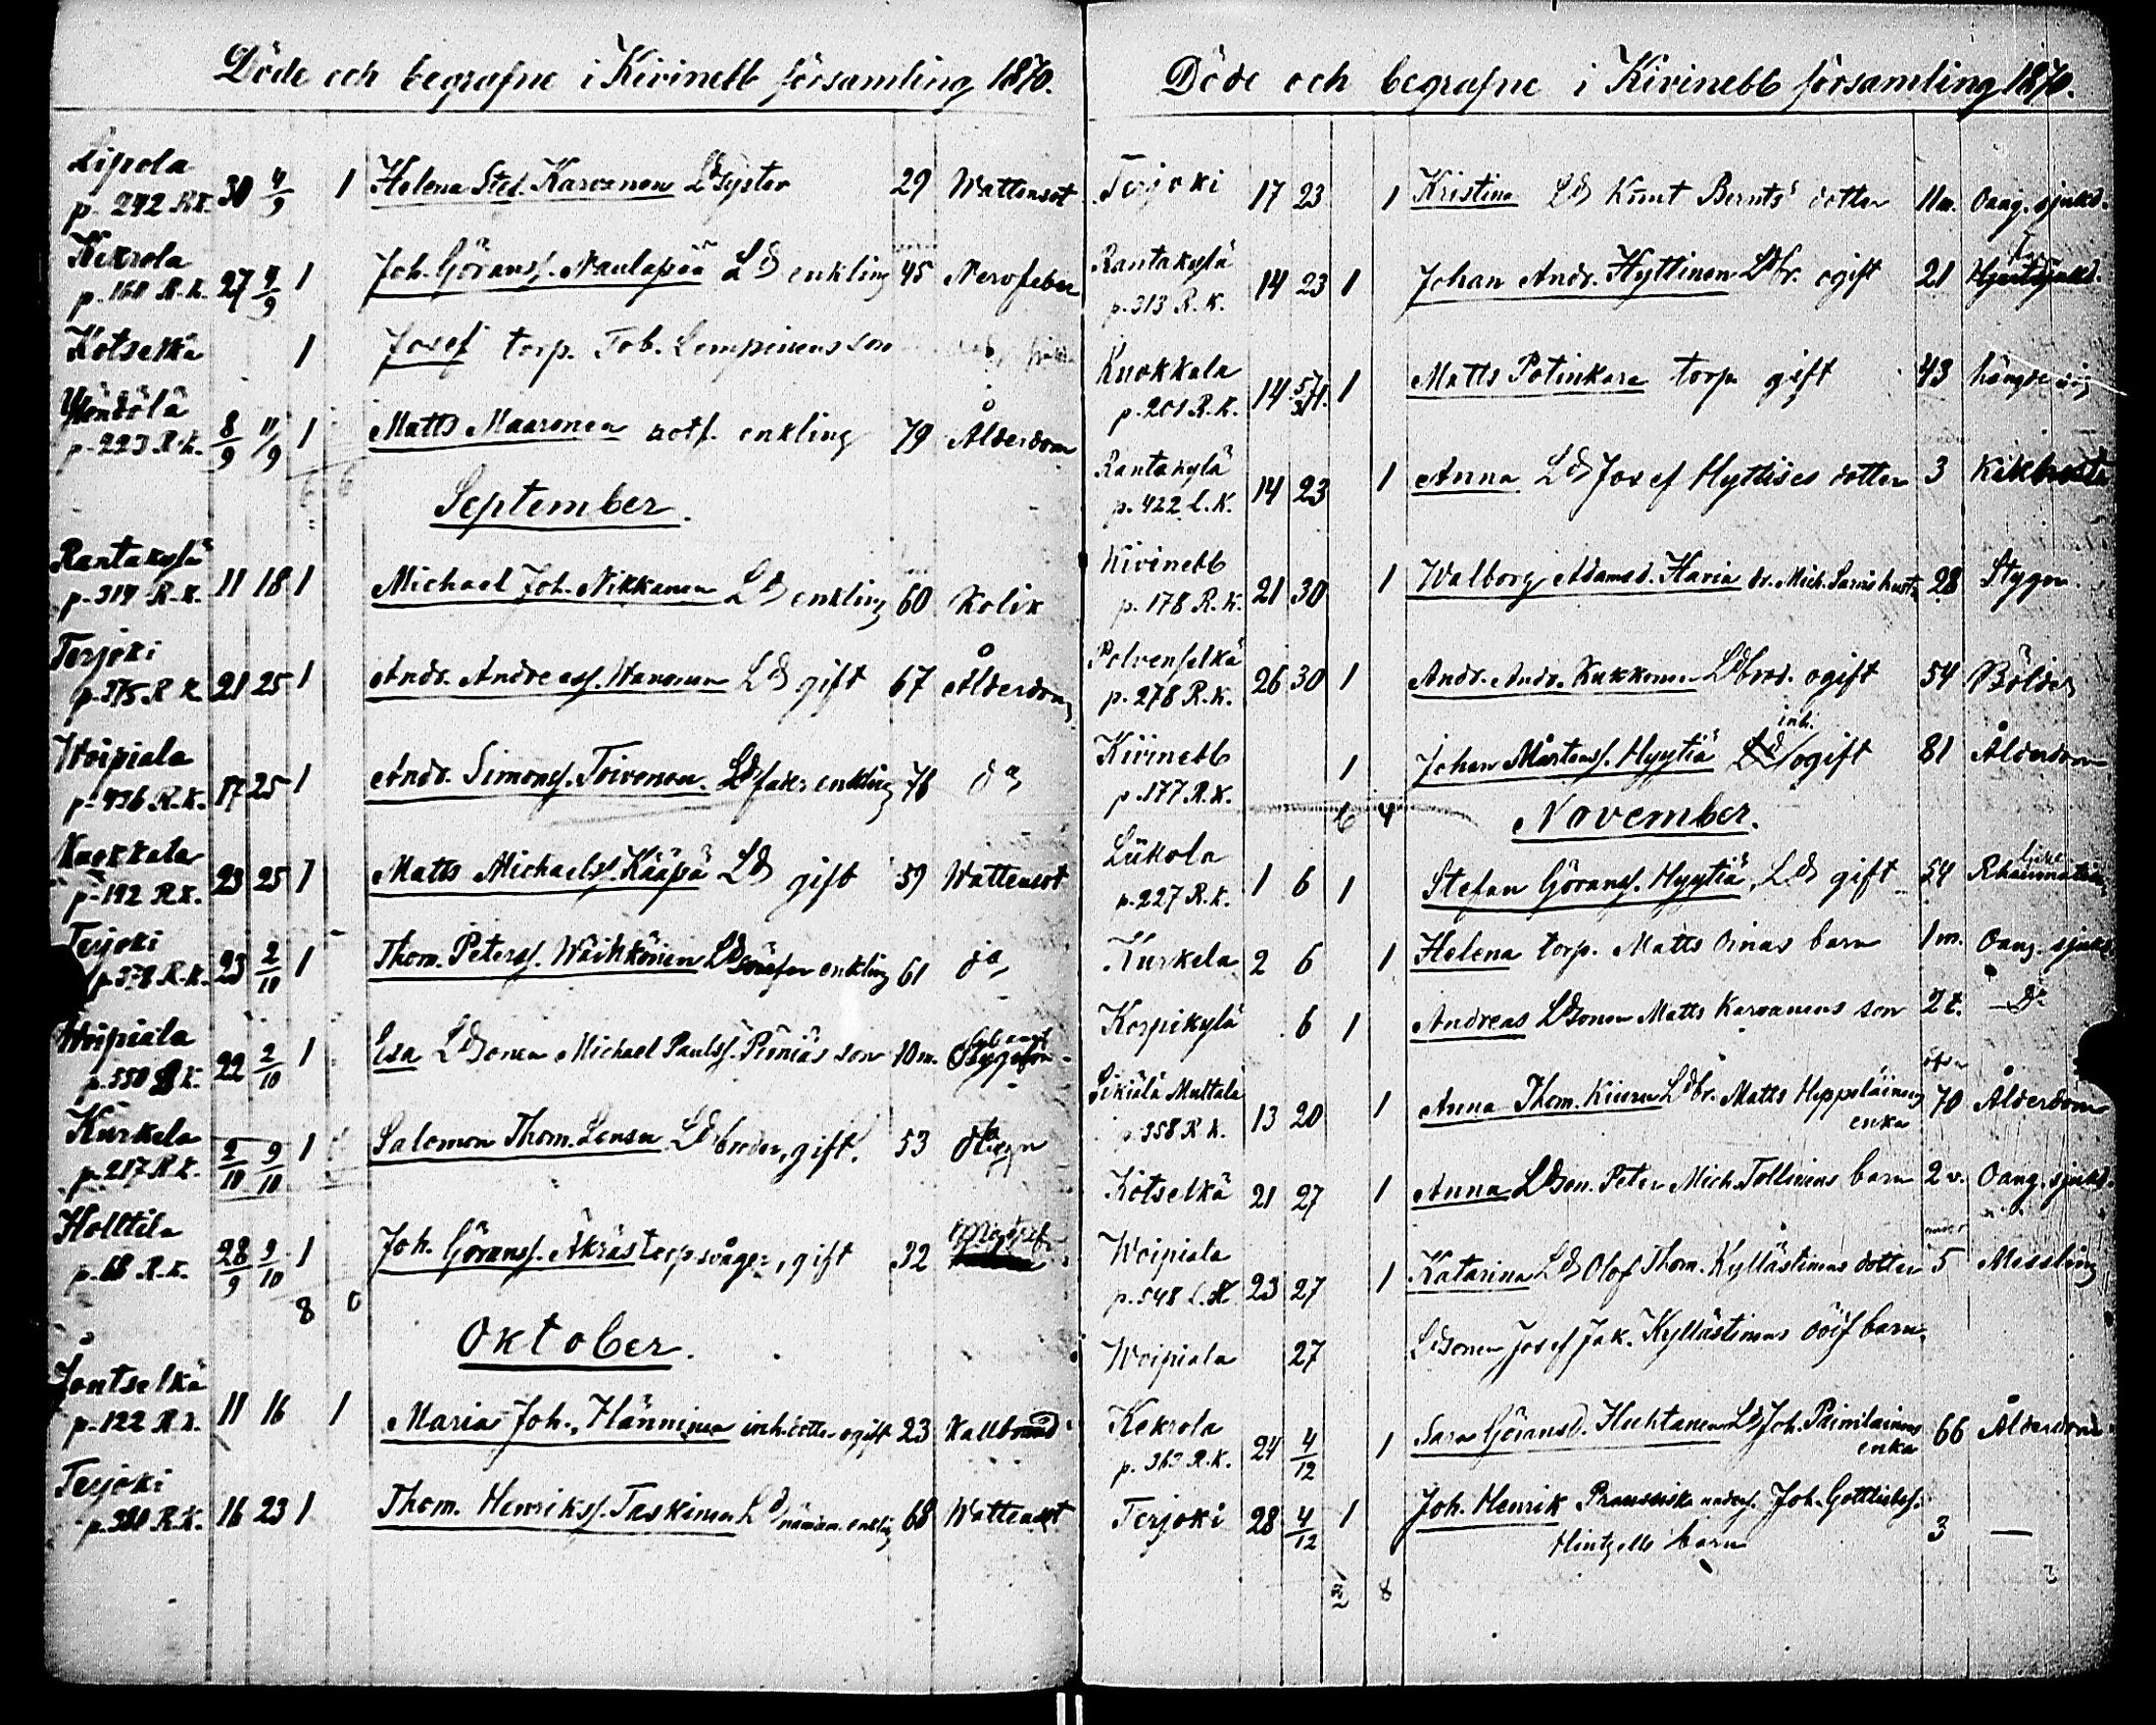 Döde och begrafne i Kivinebb församling 1870.
Lipola
p. 242 R.K. 30 4/9 1 Helena Stef. Karvanen Ldsyster 29 Wattensot
Kekrola
p. 160 R.K. 27 4/9 1 Joh. Göranss. Naulapää Ld enkling 45 Nervfeber
Kotselkä 1 Josef torp. Tob. Lempinens son
p. 223 R.K. 8/9 11/9 1 Matts Maaronen rotf. enkling 79 Ålderdom
6 6
September.
Rantakylä
p. 314 R.K. 11 18 1 Michael Joh. Nikkanen Ld enkling 60 Kolik
Terjoki
p. 375 R.K. 21 25 1 Andr. Andreass. Wanonen Ld gift 67 Ålderdom
Woipiala
p. 436 R.K. 17 25 1 Andr. Simonss. Toivonen Ld enkling 76 do
Kuokkala
p. 192 R.K. 23 25 1 Matts Michaelss. Kääpä Ld gift 59 Wattensot
Terjoki
p. 378 R.K. 23 2/10 1 Thom. Peterss. Wäihkönen Ld enkling 61 do
Woipiala
p. 550 R.K. 22 2/10 1 Esa Ldsonen Michael Paulss. Pirniäs son 10 m.
Kurkela
p. 217 R.K. 2/10 9/10 1 Salomon Thom. Lensu Ldbroder, gift. 53
Holttila
p. 68 R.K. 28/9 9/10 1 Joh. Göranss. Äkräs torp svåger, gift 32
8 0
Oktober.
Jäutselkä
p. 122 R.K. 11 16 1 Maria Joh. Hänninen inh. dotter ogift 23 Kallbrand
Terjoki
p. 380 R.K. 16 23 1 Thom. Henrikss. Taskinen Ld nämdem. enkling 68 Wattensot
Döde och begrafne i Kivinebb församling 1870.
Terjoki 17 23 1 Kristina Ld Knut Bernts dotter 11 m. Oang. sjukd.
Rantakylä
p. 313 R.K. 14 23 1 Johan Andr. Hyttinen Ldbr. ogift 21
Kuokkala
p. 201 R.K. 14 1 Matts Potinkara torp. gift 43 hängde sig
Rantakylä
p. 422 L.K. 14 23 1 Anna Ld Josef Hyttises dotter 3 Kikhosta
Kivinebb
p. 178 R.K. 21 30 1 Walborg Adamsd. Havia dr. Mich. Sarvis hustr. 28 Stygn
Polvenselkä
p. 278 R.K. 26 30 1 Andr. Andr. Kukkonen Ldbrod. ogift 54 Bölder
inh.
Kivinebb
p. 177 R.K. 1 Johan Mårtenss. Hyytiä Ld ogift 81 Ålderdom
6 4
November.
Liikola
p. 227 R.K. 1 6 1 Stefan Göranss. Hyytiä, Ld gift 54 Rheumatism
Kurkela 2 6 1 Helena torp. Matts Oinas barn 1 m. Oang. sjukd.
Korpikylä 6 1 Andreas Ldsonen Matts Karvanens son 2 t. Do
Sikiälä Multala
p. 358 R.K. 13 20 1 Anna Thom. Kiuru Ldbr. Matts Heppoläinens 70 Ålderdom
enka
Kotselkä 21 27 1 Anna Ldson. Peter Mich. Tollinens barn 2 v. Oang. sjukd.
under
Woipiala
p. 548 L.K. 23 27 1 Katarina Ld Olof Thom. Kyllästinens dotter 5 Messling
Woipiala 27 Ldsonen Josef Jak. Kyllästinens döf barn
Kekrola
p. 363 R.K. 24 4/12 1 Sara Göransd. Huhtanen Ld Joh. Päiviläinens 66 Ålderdom
enka
Terjoki 28 4/12 1 Joh. Henrik Preussiske unders. Joh. Gottliebs. 3 —
Hintzells barn
8